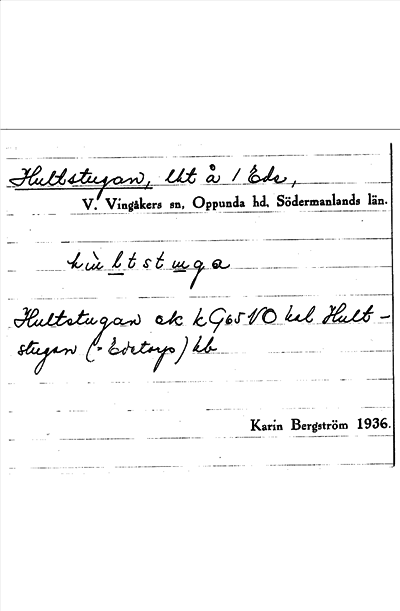 Hultstugan, lht å 1 Eds,
V. Vingåkers sn, Oppunda hd, Södermanlands län.
Hultstugan ek kG65VO hal Hult-
stugan (= Edstorp) hb
Karin Bergström 1936.